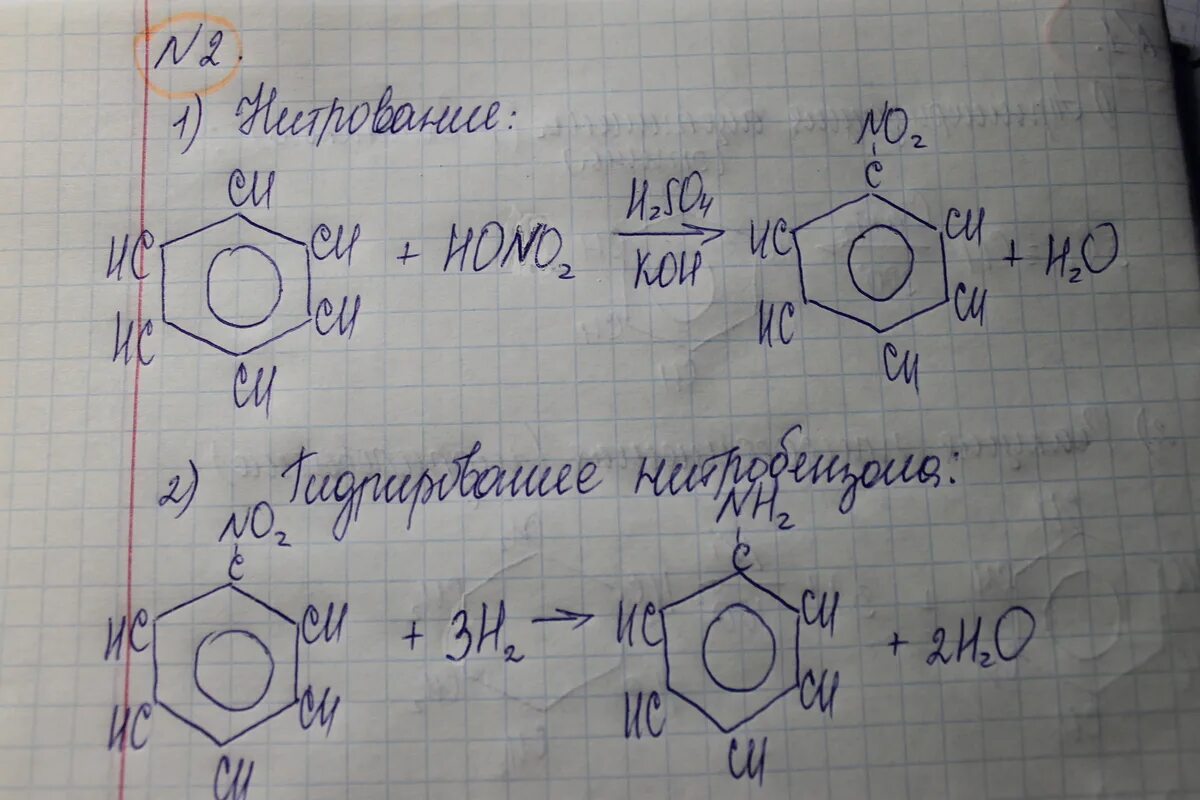 N2.
1) Нитрование:
CH
HC CH
HC CH
CH
+ HONO₂
H₂SO₄
KOH
NO₂
C
HC CH
HC CH
CH
+ H₂O
2) Гидрирование нитробензола:
NO₂
C
HC CH
HC CH
CH
+ 3H₂ →
NH₂
C
HC CH
HC CH
CH
+ 2H₂O